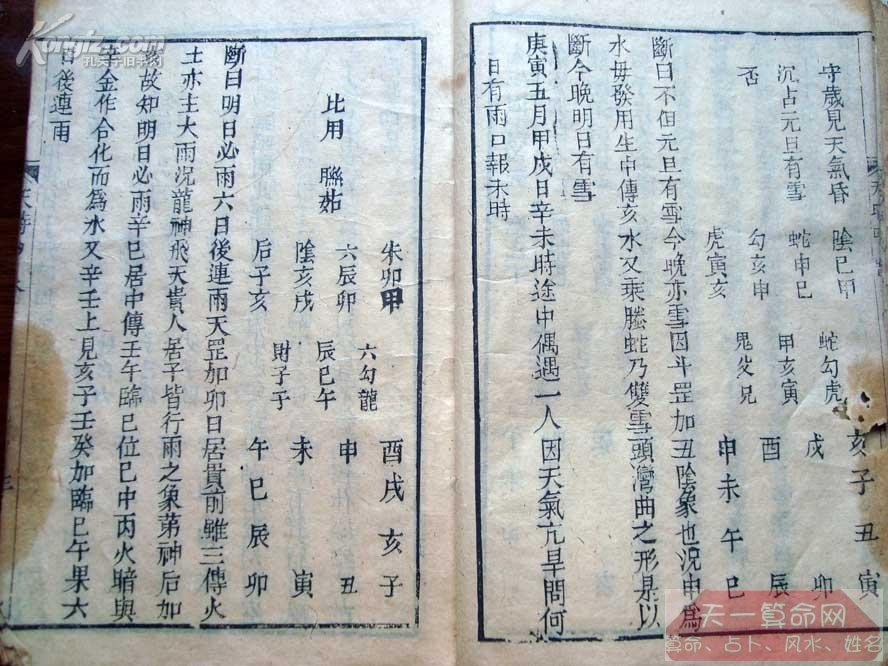 守歲見天氣昏 陰巳甲 蛇勾虎 亥子丑寅
沉占元旦有雪 蛇申巳 甲亥寅 戌 卯
否 勾亥申 鬼父兄 酉 辰
虎寅亥 申未午巳
斷曰不但元旦有雪今晚亦雪因斗罡加丑陰象也況申為
水毋發用生中傳亥水又乘螣蛇乃雙雪頭灣曲之形是以
斷今晚明日有雪
庚寅五月甲戌日辛未時途中偶遇一人因天氣亢旱問何
日有雨口報未時
朱卯甲 六勾龍 酉戌亥子
六辰卯 辰巳午 申 丑
比用 聯茹 陰亥戌 財子子 未 寅
后子亥 午巳辰卯
斷曰明日必雨六日後連雨天罡加卯日居貴前雖三傳火
土亦主大雨況龍神飛天貴人居子皆行雨之象第神后加
故知明日必雨辛巳居中傳壬午臨巳位巳中丙火暗與
辛金作合化而為水又辛壬上見亥子壬癸加臨巳午果六
日後連雨
天時
Kongfz.com
孔夫子旧书网
天一算命网
算命、占卜、风水、姓名